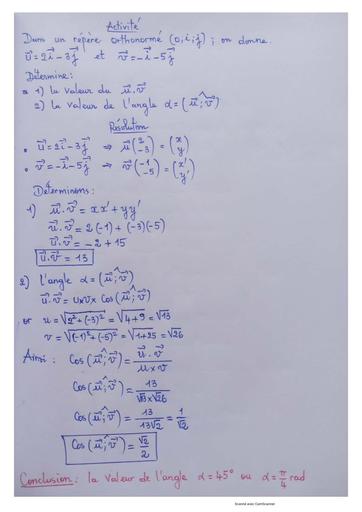 Activité
Dans un répère orthonormé (o,i,j) ; on donne.
u⃗=2i⃗-3j⃗ et v⃗=-i⃗-5j⃗
Détermine :
1) la valeur du u⃗.v⃗
2) la valeur de l'angle α=(u⃗;v⃗)
Résolution
• u⃗=2i⃗-3j⃗ ⇒ u⃗(2 -3)=(x y)
• v⃗=-i⃗-5j⃗ ⇒ v⃗(-1 -5)=(x' y')
Déterminons :
1) u⃗.v⃗ = xx'+yy'
u⃗.v⃗ = 2(-1)+(-3)(-5)
u⃗.v⃗ = -2+15
u⃗.v⃗ = 13
2) l'angle α=(u⃗;v⃗)
u⃗.v⃗ = u×v× Cos(u⃗;v⃗)
or u=√(2²+(-3)²) = √(4+9) = √13
v=√((-1)²+(-5)²) = √(1+25) = √26
Ainsi : Cos(u⃗;v⃗) = u⃗.v⃗/u×v
Cos(u⃗;v⃗) = 13/√13×√26
Cos(u⃗;v⃗) = 13/13√2 = 1/√2
Cos(u⃗;v⃗) = √2/2
Conclusion : la valeur de l'angle α=45° ou α=π/4 rad
Scanné avec CamScanner